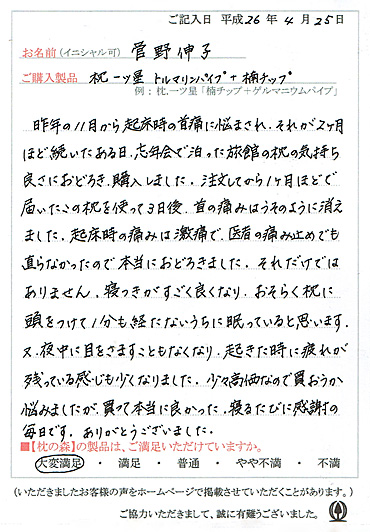 ご記入日 平成26年4月25日
お名前(イニシャル可) 菅野伸子
ご購入製品 枕一ツ星 トルマリンパイプ+楠チップ
例:枕.一ツ星「楠チップ+ゲルマニウムパイプ」
昨年の11月から起床時の首痛に悩まされ、それが2ヶ月
ほど続いたある日、忘年会で泊った旅館の枕の気持ち
良さにおどろき、購入しました。注文してから1ヶ月ほどで
届いたこの枕を使って3日後、首の痛みはうそのように消え
ました。起床時の痛みは激痛で、医者の痛み止めでも
直らなかったので本当におどろきました。それだけでは
ありません、寝つきがすごく良くなり、おそらく枕に
頭をつけて1分も経たないうちに眠っていると思います。
又、夜中に目をさますこともなくなり、起きた時に疲れが
残っている感じも少くなりました。少々高価なので買おうか
悩みましたが、買って本当に良かった。寝るたびに感謝の
毎日です。ありがとうございました。
■【枕の森】の製品は、ご満足いただけていますか。
大変満足 ・ 満足 ・ 普通 ・ やや不満 ・ 不満
(いただきましたお客様の声をホームページで掲載させていただくことがあります。)
ご協力いただきまして、誠に有難うございました。